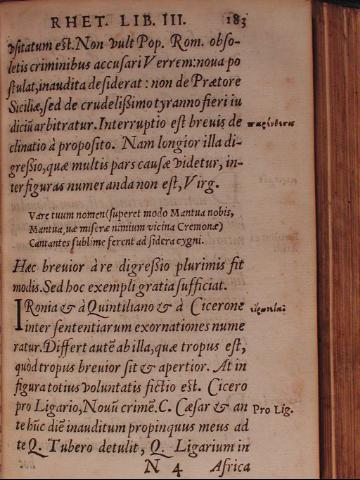 RHET. LIB. III. 183
vsitatum est. Non vult Pop. Rom. obso-
letis criminibus accusari Verrem: noua po
stulat, inaudita desiderat: non de Prætore
Siciliæ, sed de crudelissimo tyranno fieri iu
diciũ arbitratur. Interruptio est breuis de
παρένθεσις
clinatio à proposito. Nam longior illa di-
gressio, quæ multis pars causæ videtur, in-
ter figuras numeranda non est, Virg.
Vare tuum nomen (superet modo Mantua nobis,
Mantua, uæ miseræ nimium vicina Cremonæ)
Cantantes sublime ferent ad sidera cygni.
Hæc breuior à re digressio plurimis fit
modis. Sed hoc exempli gratia sufficiat.
IRonia & à Quintiliano & à Cicerone
εἰρωνεία
inter sententiarum exornationes nume
ratur. Differt autẽ ab illa, quæ tropus est,
quòd tropus breuior sit & apertior. At in
figura totius voluntatis fictio est. Cicero
pro Ligario, Nouũ crimẽ. C. Cæsar & an
Pro Lig.
te hũc diẽ inauditum propinquus meus ad
te Q. Tubero detulit, Q. Ligarium in
N 4 Africa